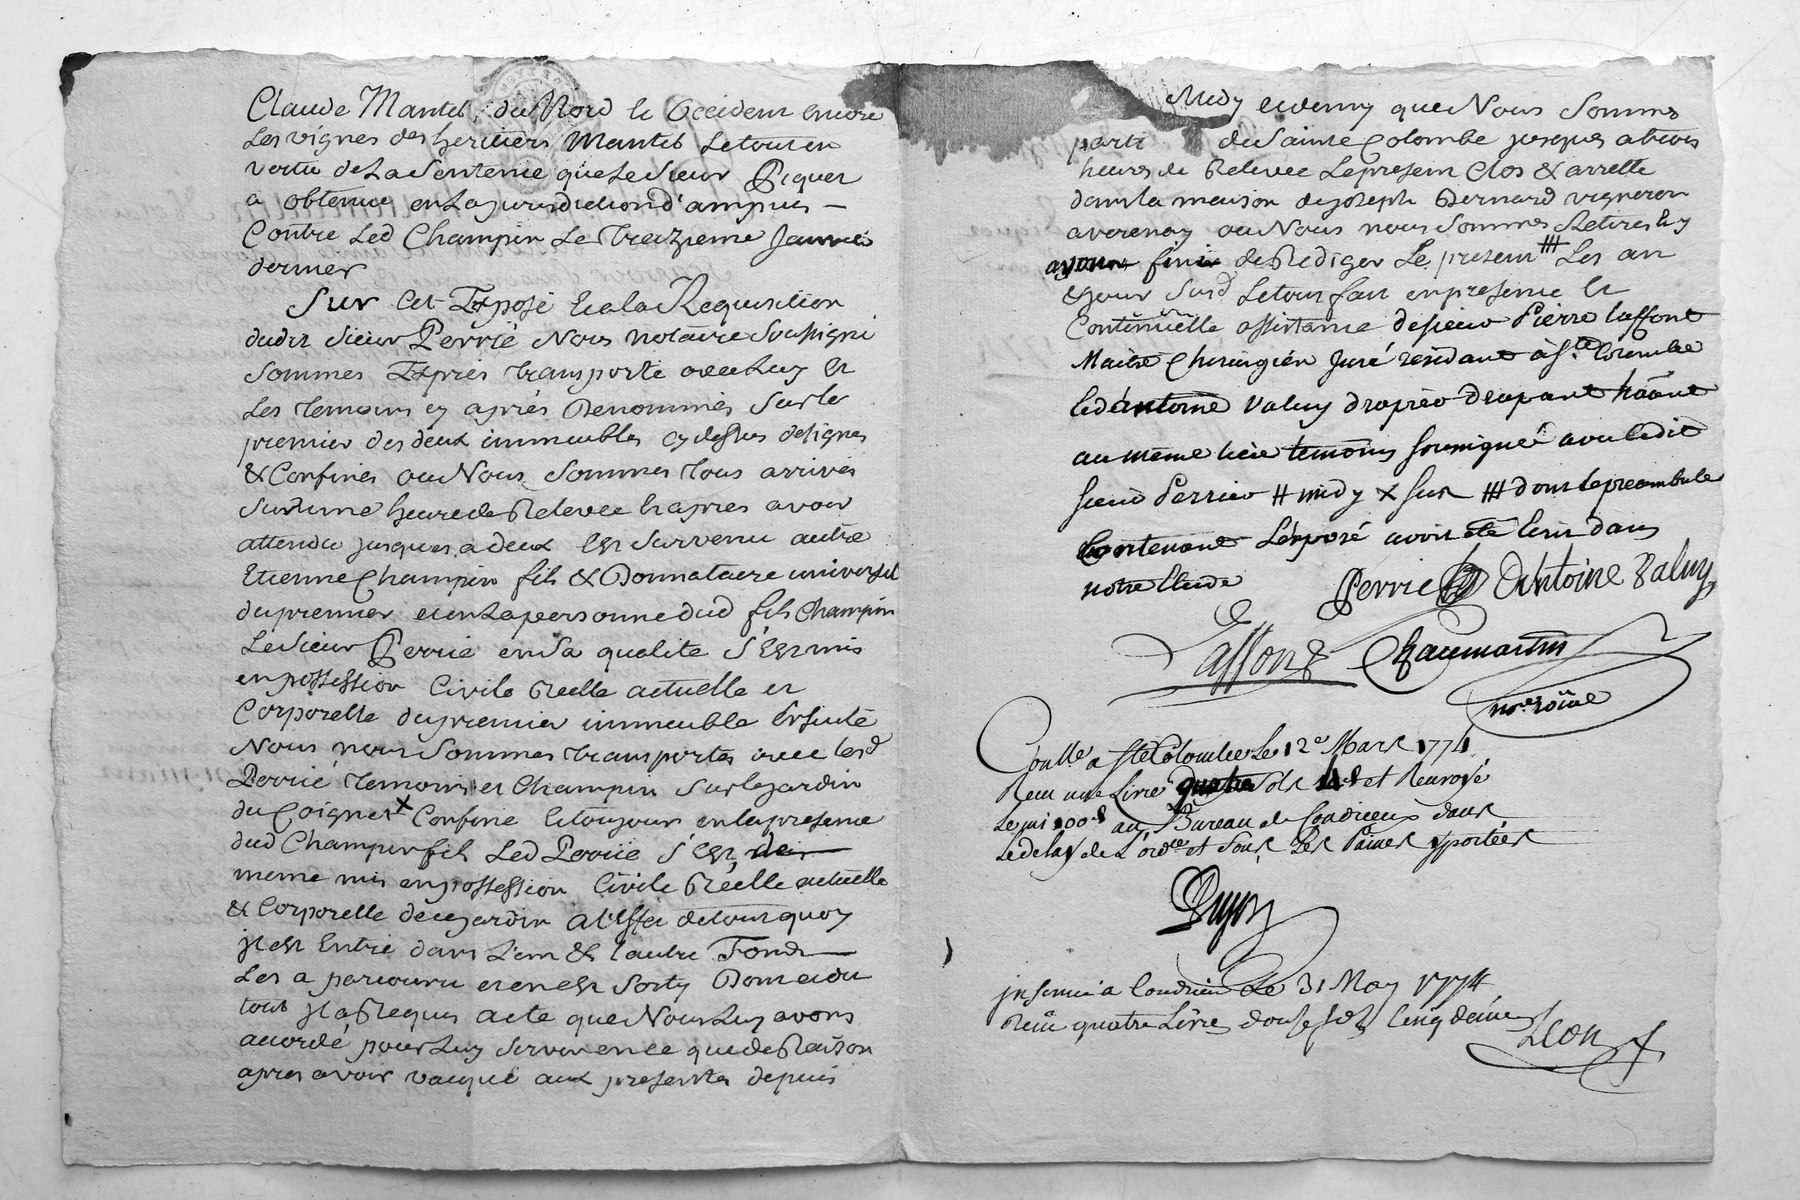 Claude Mantel, du Nord le Occident encore
Les vignes des heritiers Mantel Le tout en
vertu de La Sentence que Le Sieur Piquet
a obtenue en La jurisdiction d'ampuis —
Contre Led Champin Le treizieme Janvier
dernier
Sur Cet Exposé Et a la Requisition
dudit Sieur Perrié Nous notaire Soussigné
Sommes Exprès transporté avec Luy Et
Les temoins cy aprés Denommés Sur le
premier des deux immeubles cy dessus designés
& Confinés ou Nous Sommes tous arrivés
Sur une heure de Relevée Et apres avoir
attendu jusques a deux Est Survenu autre
Etienne Champin fils & Donnataire universel
du premier et en La personne dud fils Champin
Le Sieur Perrié en Sa qualité S'Est mis
en possession Civile Réelle actuelle et
Corporelle du premier immeuble Ensuite
Nous nous Sommes transportés avec lesd
Perrié temoins et Champin Sur le jardin
du Coignet x Confiné Et toujours en la presence
dud Champin fils Led Perrié S'Est de
meme mis en possession Civile Réelle actuelle
& Corporelle de ce jardin a l'Effet de tout quoy
jl est Entré dans L'un & l'autre Fonds
Les a parcouru et en est Sorty Dont et du
tout jl a Requis acte que Nous Luy avons
accordé pour Luy Servir en ce que de Raison
apres avoir vacqué aux presentes depuis
Midy que Nous Sommes
parti de Sainte Colombe jusques a trois
heures de Relevée Le present Clos & arretté
dans la maison de joseph Bernard vigneron
a verenay ou Nous nous Sommes Retirés Et y
avons fini de Rediger Le present ### Les an
& jour Susd Le tout fait en presence Et
Continuelle assistance de sieur Pierre laffont
Maitre Chirurgien Juré residant à Ste Colombe
led antoine Valuy drapier drapant
au même lieu temoins soussignés avec ledit
sieur Perrier # midy x sur ### dont le preambule
Contenant L'exposé avoit été leu dans
notre Etude
Perrié Antoine Valuy
Laffont Chaumartin
nore roial
Conllé a Ste Colombe Le 12e Mars 1774
Reçu une Livre quatre Sols et Renvoyé
au Bureau de Condrieux dans
Le delay de L'ordce et Sous Les Paines y portées
Guyon
jnsinué a Condrieu Le 31 May 1774
Reçu quatre Livre douse sols Cinq deniers
Leon